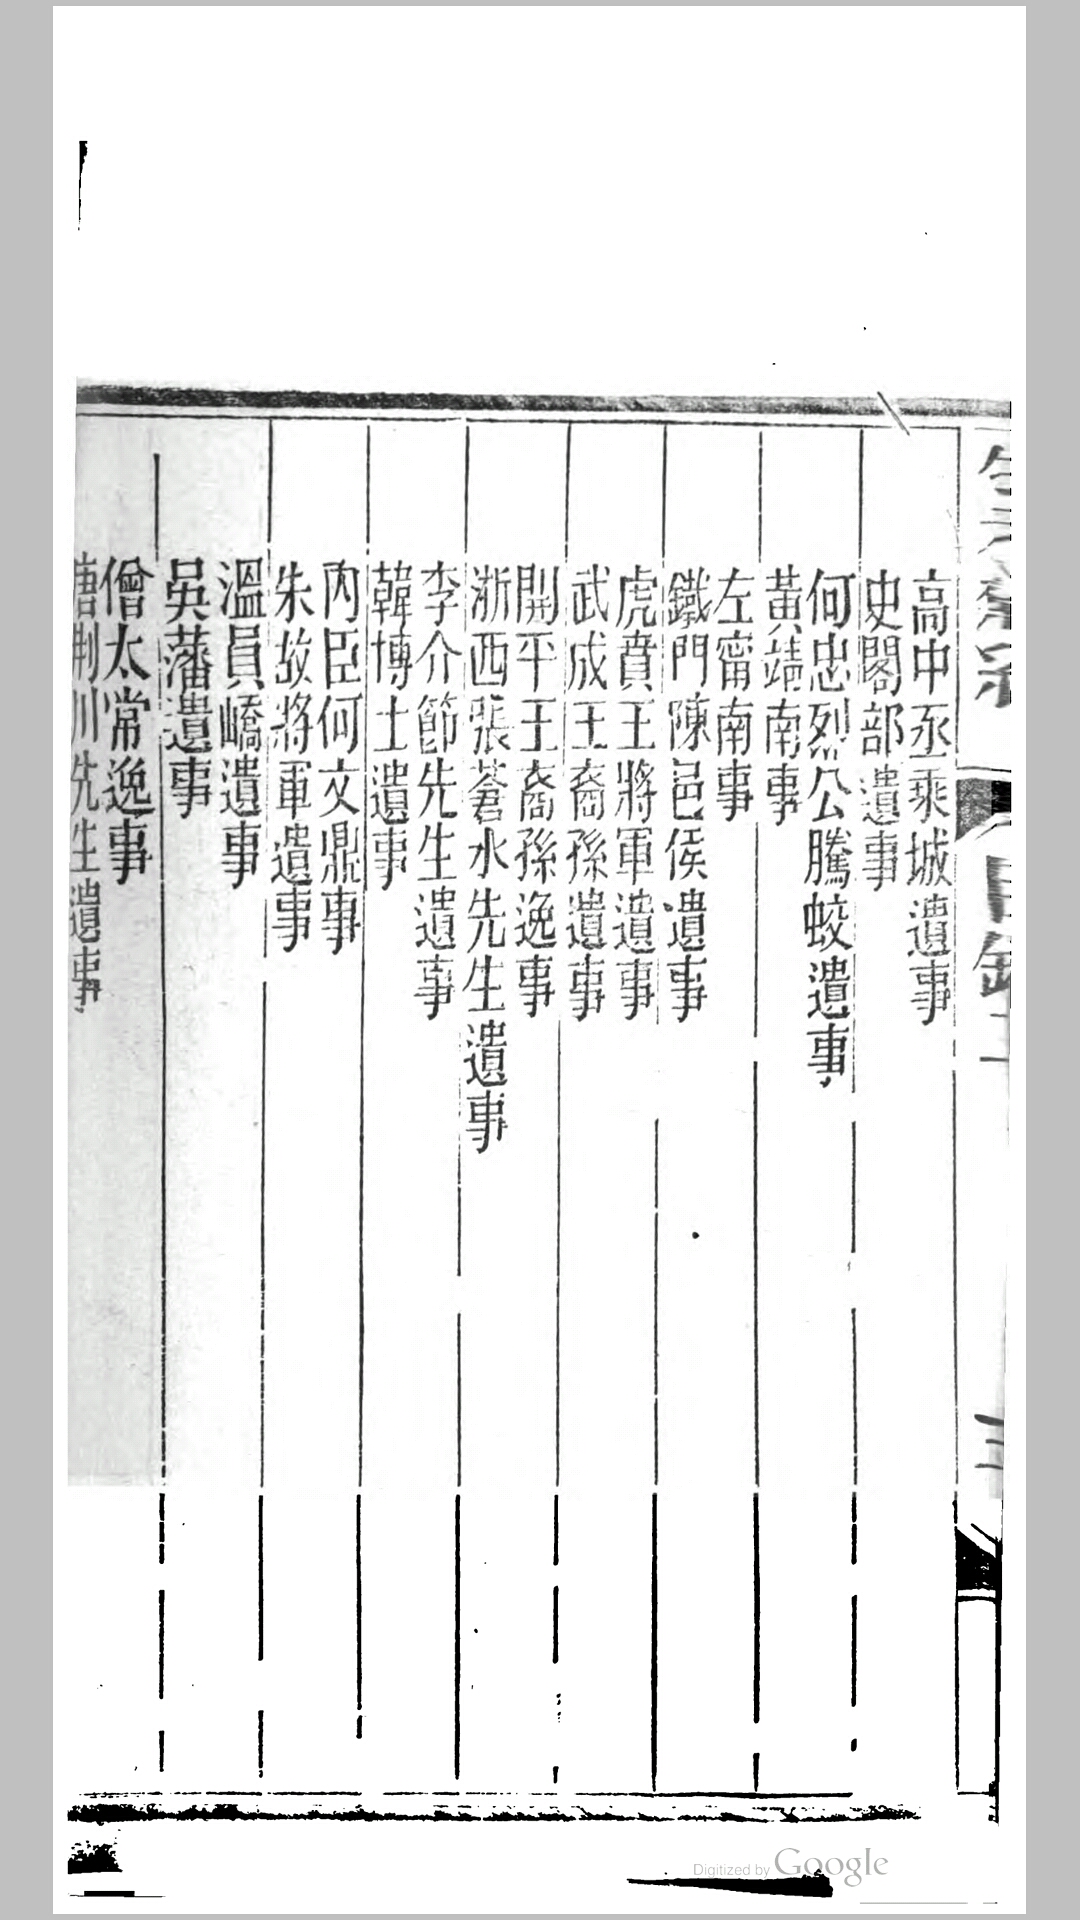 目錄
高中丞乘城遺事
史閣部遺事
何忠烈公騰蛟遺事
黃靖南事
左甯南事
鐵門陳邑侯遺事
虎賁王將軍遺事
武成王裔孫遺事
開平王裔孫逸事
浙西張蒼水先生遺事
李介節先生遺事
韓博士遺事
內臣何文鼎事
朱故將軍遺事
溫員嶠遺事
吳藩遺事
僧太常逸事
唐荆川先生遺事
Digitized by Google